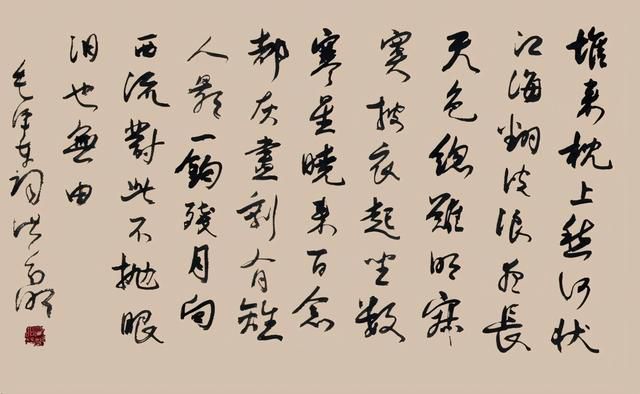 堆来枕上愁何状
江海翻波浪夜長
天色總難明寂
寞披衣起坐數
寒星曉来百念
都灰盡剩有離
人影一鈎殘月向
西流對此不抛眼
泪也無由
毛泽东词